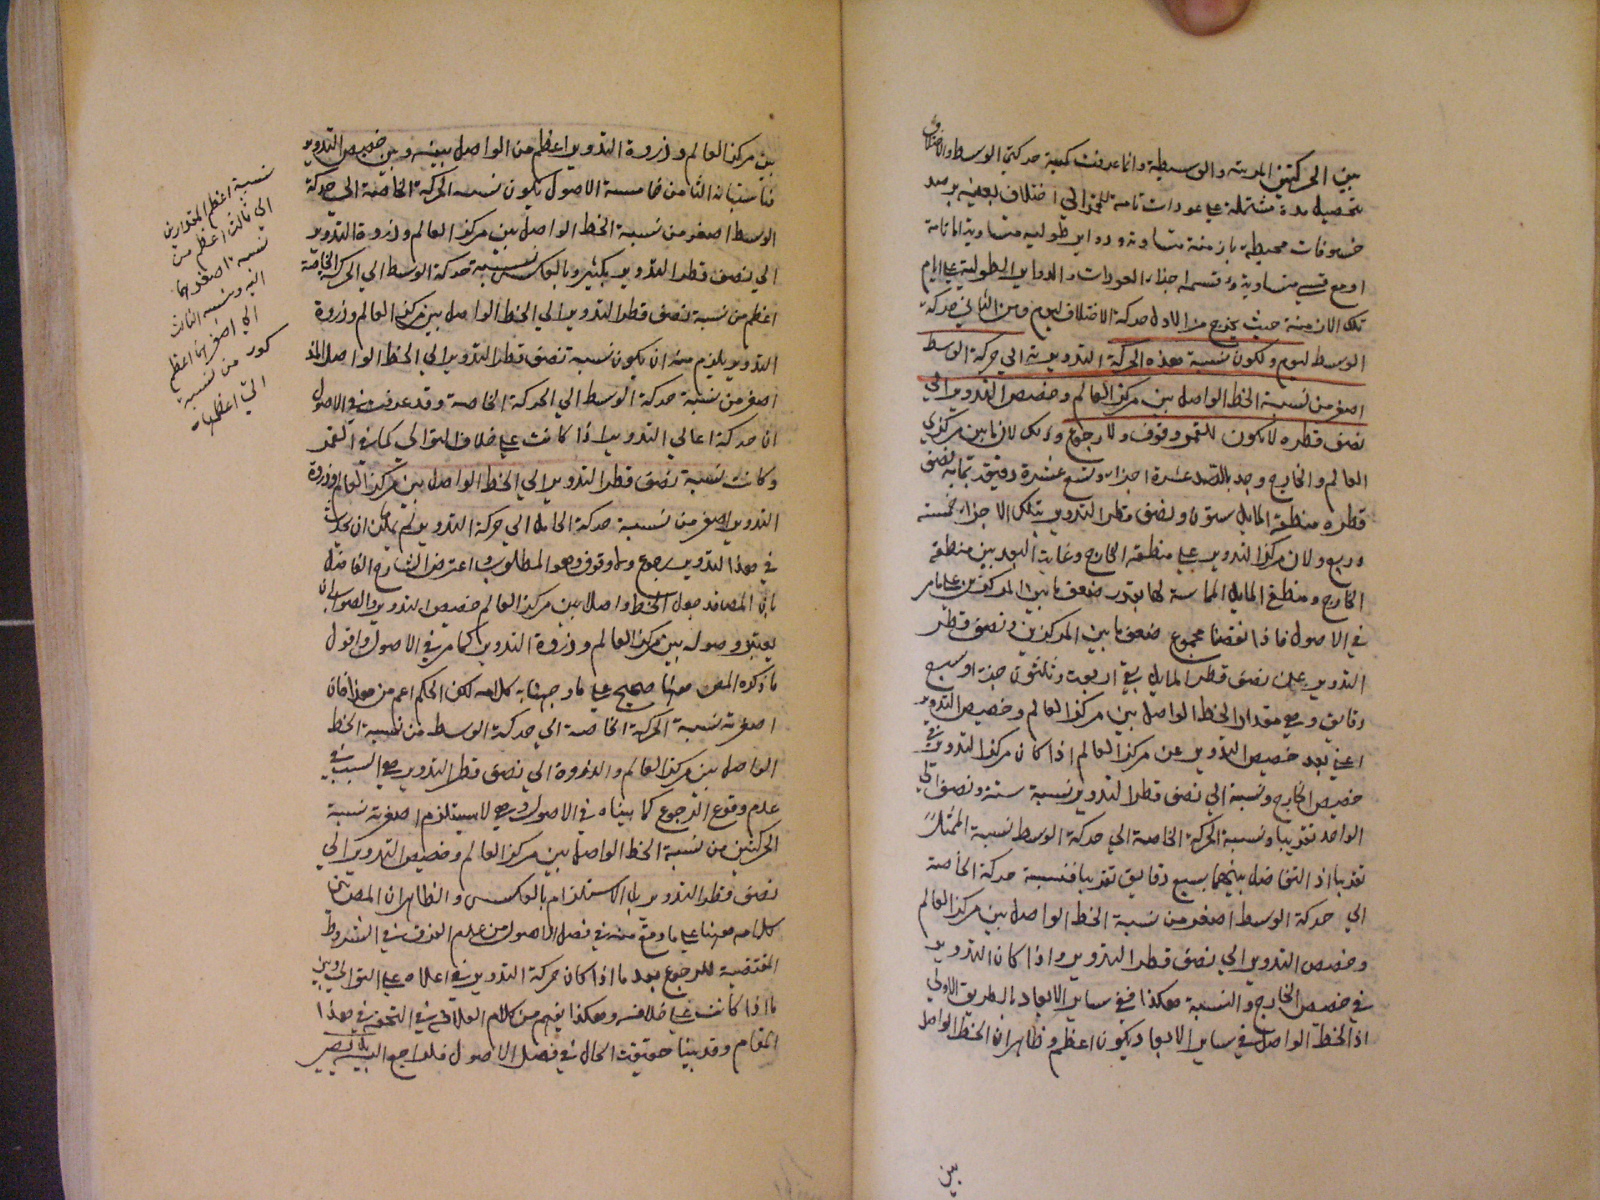 بين الحركتين المرئية والوسيطية وانما عرفت كمية حركتي الوسط والاختلاف
بتحصيل مدة مشتملة على عودات تامة للقمر الى اختلاف بعينه برصد
خسوفات محيطة بازمنة متساوية ودواير طولية متساوية اما تامة
او مع قسي متساوية وقسمة اجزاء العودات والدواير الطولية على ايام
تلك الازمنة حيث يخرج من الاول حركة الاختلاف ليوم ومن الثاني حركة
الوسط ليوم ولكون نسبة هذه الحركة التدويرية الى حركة الوسط
اصغر من نسبة الخط الواصل بين مركز العالم وحضيض التدوير الى
نصف قطره لا يكون للقمر وقوف ولا رجوع وذلك لان ما بين مركزي
العالم والخارج وجد بالرصد عشرة اجزاء وتسع عشرة دقيقة بما به نصف
قطر منطقة المايل ستون ونصف قطر التدوير بتلك الاجزاء خمسة
وربع ولان مركز التدوير على منطقة الخارج وغاية البعد بين منطقة
الخارج ومنطقة المايل المماسة لها بقدر ضعف ما بين المركزين على ما مر
في الاصول فاذا نقصنا مجموع ضعف ما بين المركزين ونصف قطر
التدوير من نصف قطر المايل بقي اربعة وثلثون جزءا وسبع
دقايق وهي مقدار الخط الواصل بين مركز العالم وحضيض التدوير
اعني بعد حضيض التدوير عن مركز العالم اذا كان مركز التدوير في
حضيض الخارج ونسبة الى نصف قطر التدوير نسبة ستة ونصف الى
الواحد تقريبا ونسبة الحركة الخاصة الى حركة الوسط نسبة المثل
تقريبا اذ التفاضل بينهما سبع دقايق تقريبا فنسبة حركة الخاصة
الى حركة الوسط اصغر من نسبة الخط الواصل بين مركز العالم
وحضيض التدوير الى نصف قطر التدوير واذا كان التدوير
في حضيض الخارج والنسبة هكذا ففي ساير الابعاد بالطريق الاولى
اذ الخط الواصل في ساير الابعاد يكون اعظم وظاهر ان الخط الواصل
بين
بين مركز العالم وذروة التدوير اعظم من الواصل بينه وبين حضيض التدوير
فاستبانة الثامن خامسة الاصول يكون نسبة الحركة الخاصة الى حركة
الوسط اصغر من نسبة الخط الواصل بين مركز العالم وذروة التدوير
الى نصف قطر التدوير بكثير وبالعكس نسبة حركة الوسط الى الحركة الخاصة
اعظم من نسبة نصف قطر التدوير الى الخط الواصل بين مركز العالم وذروة
التدوير يلزم منه ان يكون نسبة نصف قطر التدوير الى الخط الواصل
اصغر من نسبة حركة الوسط الى الحركة الخاصة وقد عرفت في الاصول
ان حركة اعالي التدوير اذا كانت على خلاف التوالي كما في القمر
وكانت نسبة نصف قطر التدوير الى الخط الواصل بين مركز العالم وذروة
التدوير اصغر من نسبة حركة الحامل الى حركة التدوير لم يمكن ان يحدث
في هذا التدوير رجوع ولا وقوف وهو المطلوب واعترض الشارح الفاضل
بان المصنف جعل الخط واصلا بين مركز العالم وحضيض التدوير والصواب ان
يعتبر وصوله بين مركز العالم وذروة التدوير كما مر في الاصول واقول
ما ذكره المص ههنا صحيح على ما وجهنا به كلامه لكن الحكم اعم من هذا فان
اصغرية نسبة الحركة الخاصة الى حركة الوسط من نسبة الخط
الواصل بين مركز العالم والذروة الى نصف قطر التدوير هي السبب في
عدم وقوع الرجوع كما بيناه في الاصول وهي لا يستلزم اصغرية نسبة
الحركتين من نسبة الخط الواصل بين مركز العالم وحضيض التدوير الى
نصف قطر التدوير بل الاستلزام بالعكس والظاهر ان المصنف
كلامه ههنا على ما وقع منه في فصل الاصول من عدم الفرق في الشروط
المقتضية للرجوع بعد ما اذا كان حركة التدوير في اعلاه على التوالي وبين
ما اذا كانت على خلافه وهكذا يفهم من كلام العلامة في التحفة في هذا
المقام وقد بينا حقيقة الحال في فصل الاصول فليراجع اليه
نسبة اعظم المقدارين
الى ثالث اعظم من
نسبة اصغرهما
اليه ونسبة الثالث
الى اصغرهما اعظم
من نسبته
الى اعظمهما